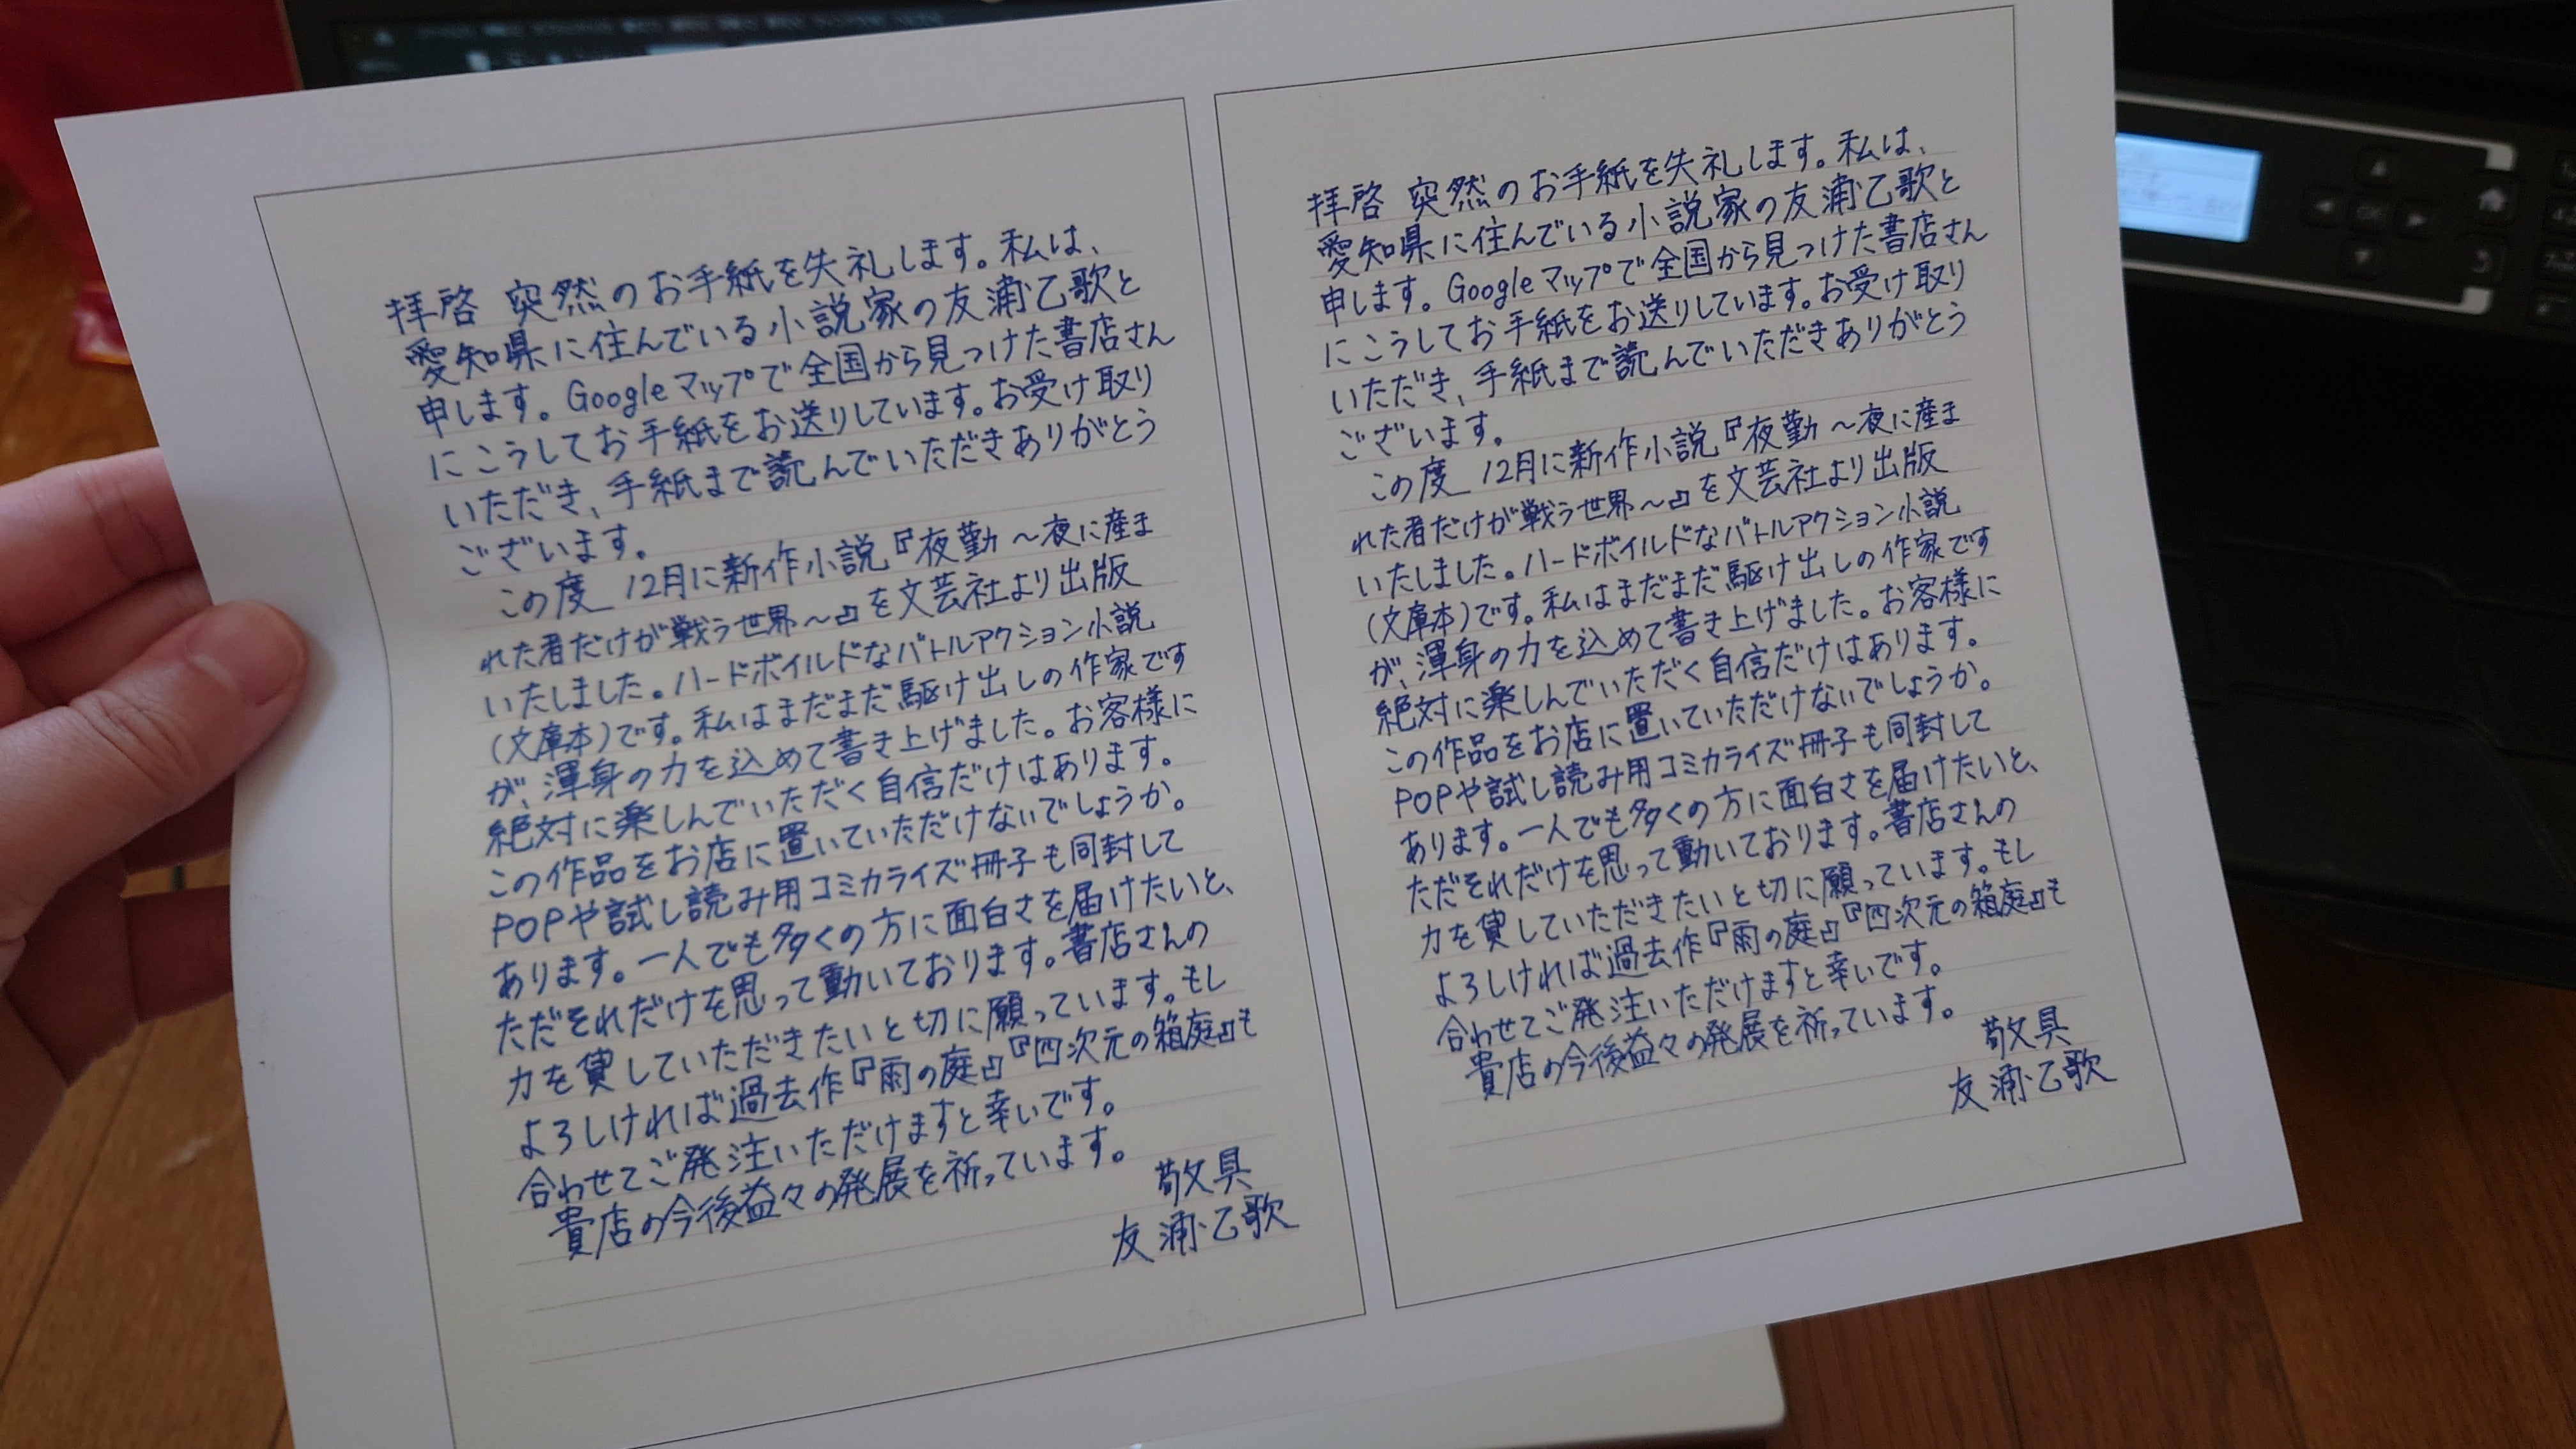 拝啓 突然のお手紙を失礼します。私は、
愛知県に住んでいる小説家の友浦乙歌と
申します。Googleマップで全国から見つけた書店さん
にこうしてお手紙をお送りしています。お受け取り
いただき、手紙まで読んでいただきありがとう
ございます。
この度 12月に新作小説『夜勤 〜夜に産ま
れた者だけが戦う世界〜』を文芸社より出版
いたしました。ハードボイルドなバトルアクション小説
(文庫本)です。私はまだまだ駆け出しの作家です
が、渾身の力を込めて書き上げました。お客様に
絶対に楽しんでいただく自信だけはあります。
この作品をお店に置いていただけないでしょうか。
POPや試し読み用コミカライズ冊子も同封して
あります。一人でも多くの方に面白さを届けたいと、
ただそれだけを思って動いております。書店さんの
力を貸していただきたいと切に願っています。もし
よろしければ過去作『雨の庭』『四次元の箱庭』も
合わせてご発注いただけますと幸いです。
貴店の今後益々の発展を祈っています。
敬具
友浦乙歌
拝啓 突然のお手紙を失礼します。私は、
愛知県に住んでいる小説家の友浦乙歌と
申します。Googleマップで全国から見つけた書店さん
にこうしてお手紙をお送りしています。お受け取り
いただき、手紙まで読んでいただきありがとう
ございます。
この度 12月に新作小説『夜勤 〜夜に産ま
れた者だけが戦う世界〜』を文芸社より出版
いたしました。ハードボイルドなバトルアクション小説
(文庫本)です。私はまだまだ駆け出しの作家です
が、渾身の力を込めて書き上げました。お客様に
絶対に楽しんでいただく自信だけはあります。
この作品をお店に置いていただけないでしょうか。
POPや試し読み用コミカライズ冊子も同封して
あります。一人でも多くの方に面白さを届けたいと、
ただそれだけを思って動いております。書店さんの
力を貸していただきたいと切に願っています。もし
よろしければ過去作『雨の庭』『四次元の箱庭』も
合わせてご発注いただけますと幸いです。
貴店の今後益々の発展を祈っています。
敬具
友浦乙歌